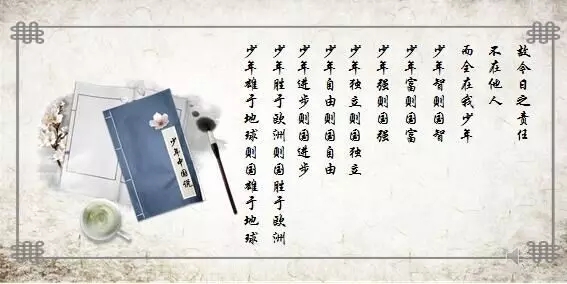 故今日之责任
不在他人
而全在我少年
少年智则国智
少年富则国富
少年强则国强
少年独立则国独立
少年自由则国自由
少年进步则国进步
少年胜于欧洲则国胜于欧洲
少年雄于地球则国雄于地球
少年中国说